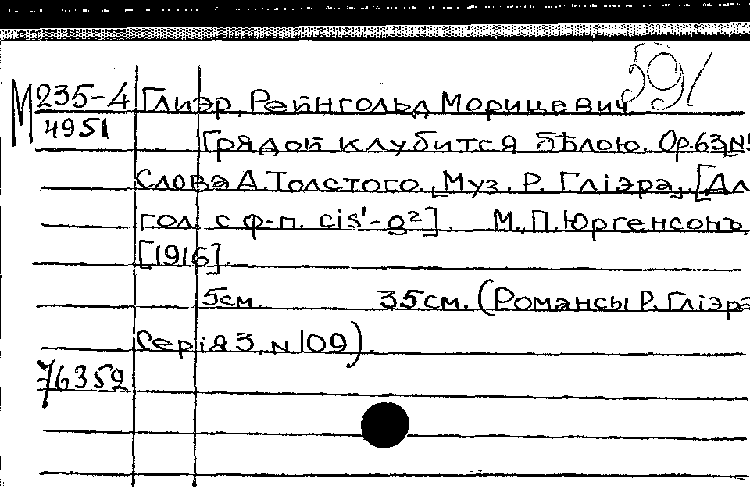 591
М 235-4 Глиэр, Рейнгольд Морицевич
4951
Грядой клубится бѣлою. Op.63, N
Слова А.Толстого. Муз. Р. Глiэра. [Дл
гол. с ф-п. cis¹-g²]. М., П.Юргенсонъ,
[1916].
5см. 35см. (Романсы Р. Глiэра
Серiя 3, N 109).
76352